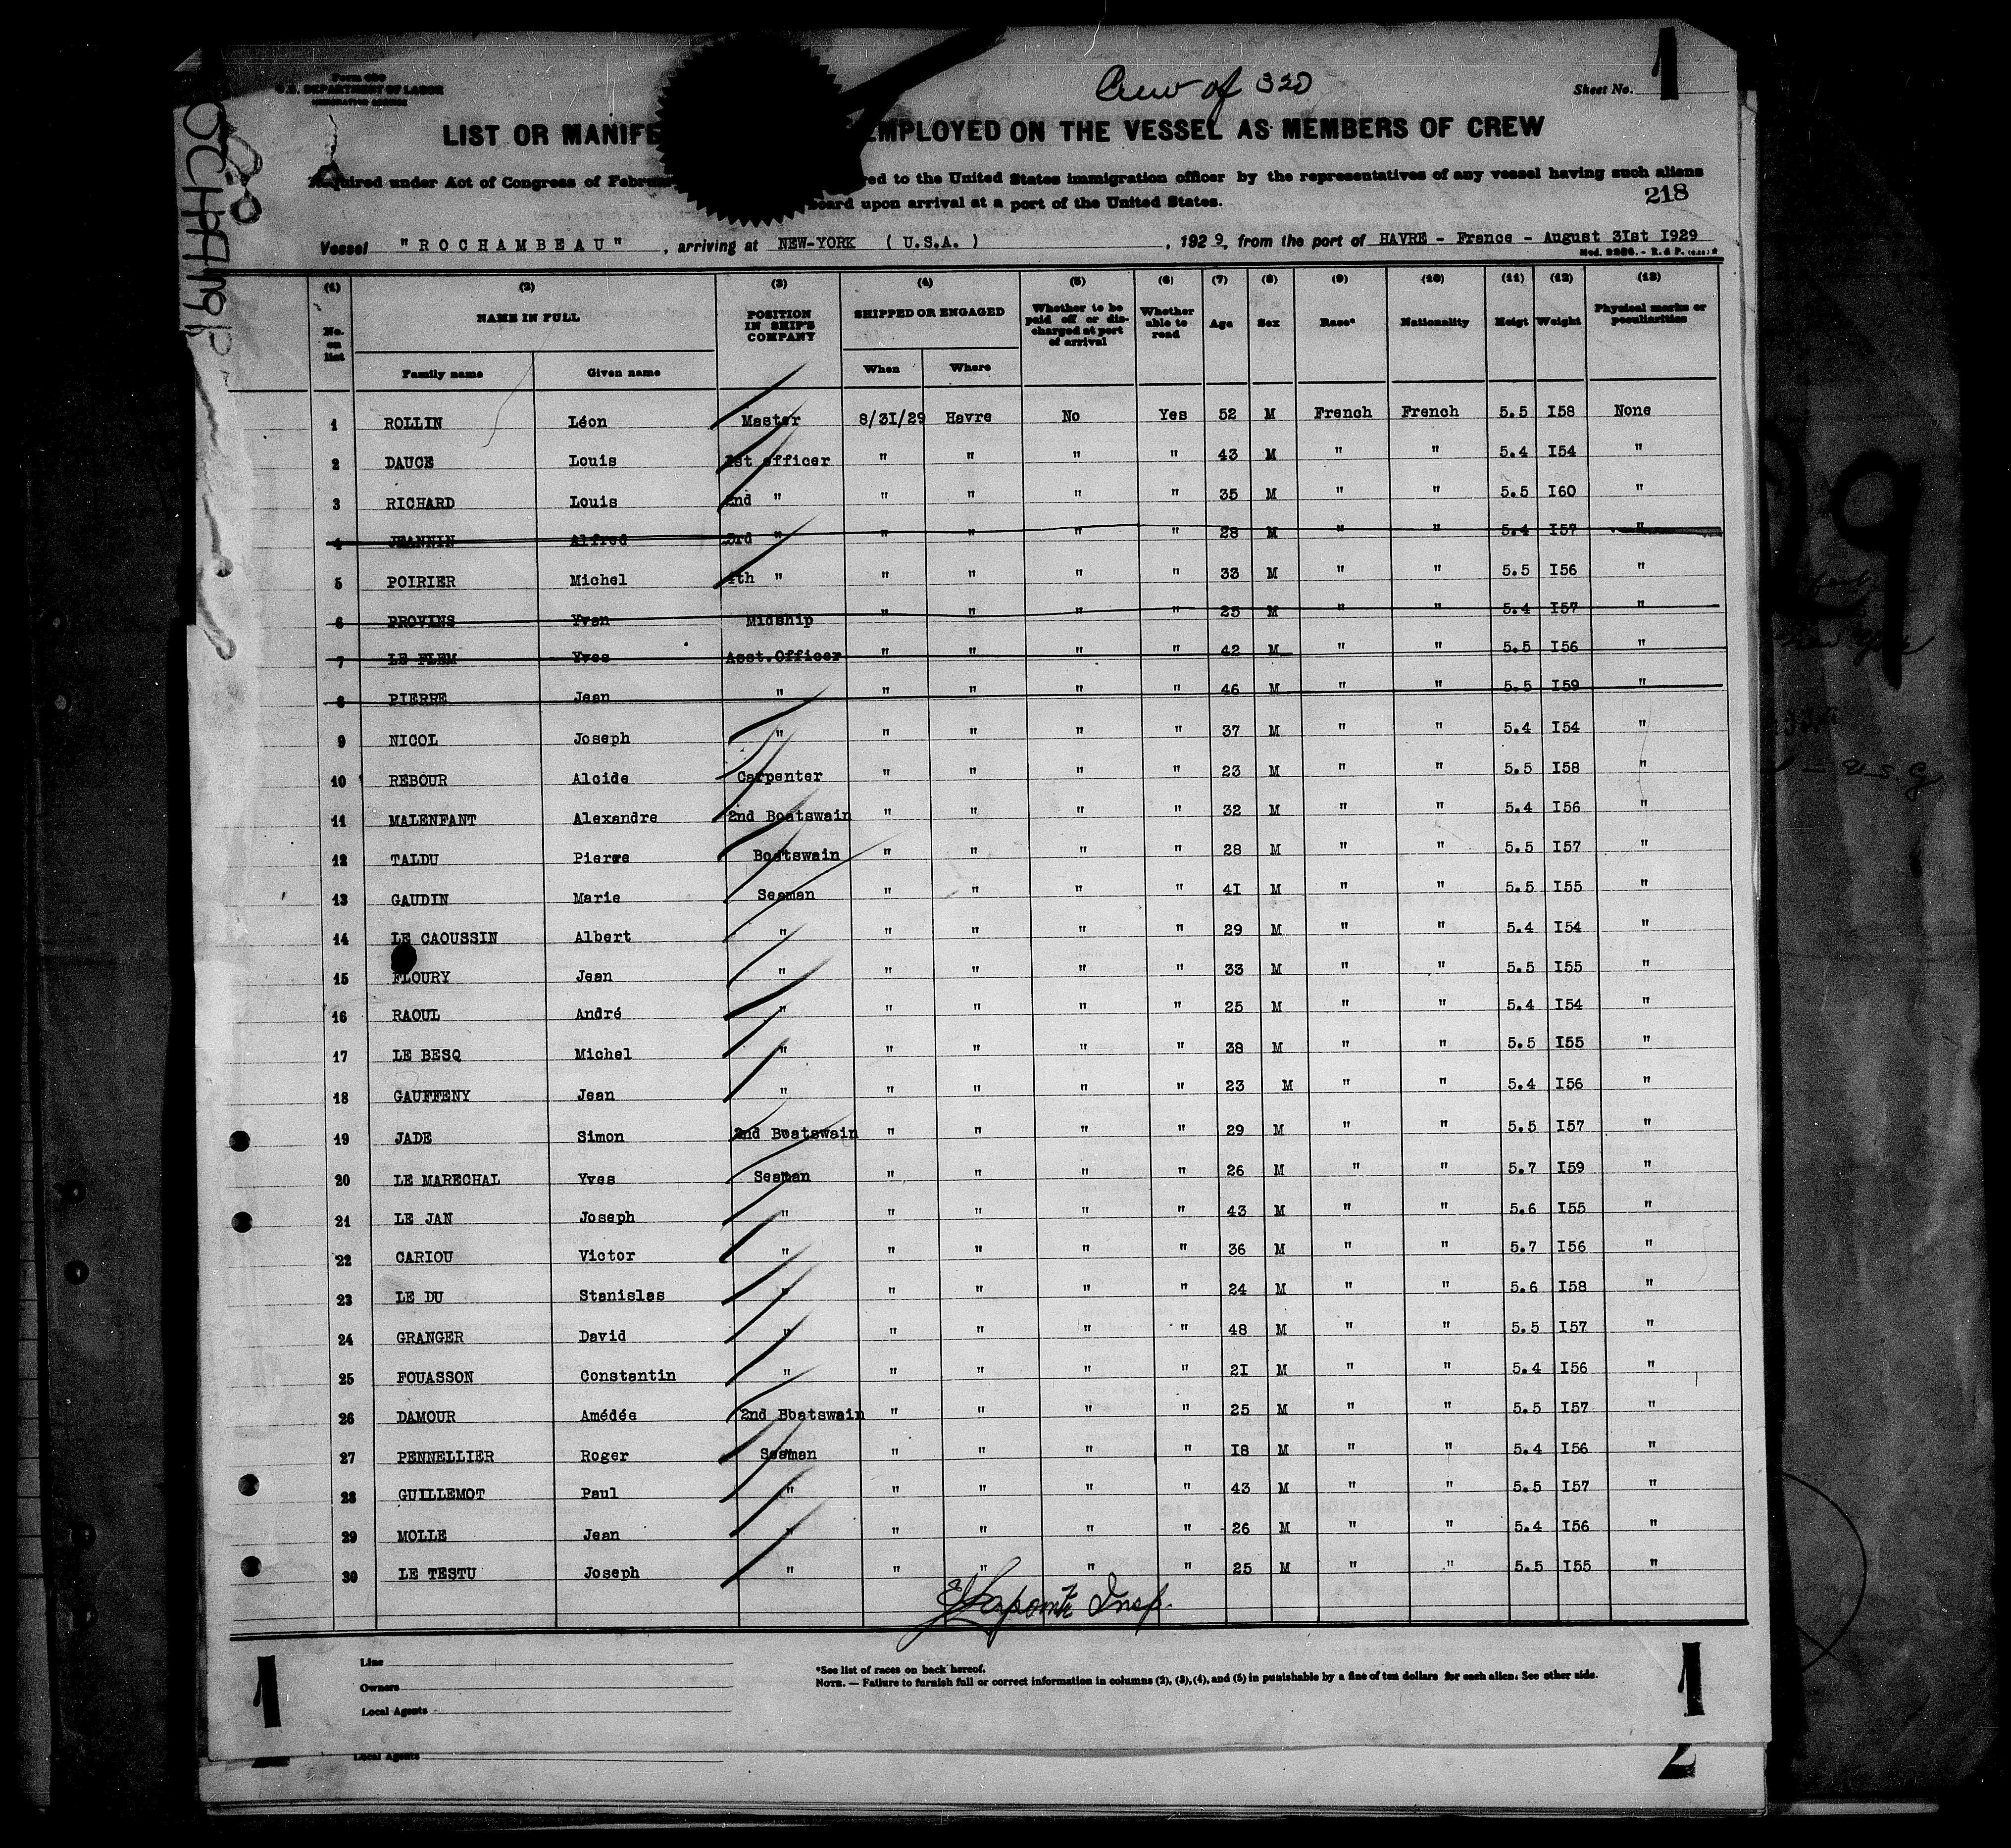 Form 680
U.S. DEPARTMENT OF LABOR
IMMIGRATION SERVICE
Crew of 320
Sheet No. 1
LIST OR MANIFE EMPLOYED ON THE VESSEL AS MEMBERS OF CREW
Required under Act of Congress of Februar red to the United States immigration officer by the representatives of any vessel having such aliens
board upon arrival at a port of the United States.
218
Vessel "ROCHAMBEAU", arriving at NEW-YORK (U.S.A.), 1929, from the port of HAVRE - France - August 3Ist I929
(1) (2) (3) (4) (5) (6) (7) (8) (9) (10) (11) (12) (13)
No. on list NAME IN FULL POSITION IN SHIP'S COMPANY SHIPPED OR ENGAGED Whether to be paid off or discharged at port of arrival Whether able to read Age Sex Race* Nationality Heigt Weight Physical marks or peculiarities
Family name Given name When Where
1 ROLLIN Léon Master 8/31/29 Havre No Yes 52 M French French 5.5 I58 None
2 DAUCE Louis 1st officer " " " " 43 M " " 5.4 I54 "
3 RICHARD Louis 2nd " " " " " 35 M " " 5.5 I60 "
4 JEANNIN Alfred 3rd " " " " " 28 M " " 5.4 I57 "
5 POIRIER Michel 4th " " " " " 33 M " " 5.5 I56 "
6 PROVINS Yvan Midship " " " " 25 M " " 5.4 I57 "
7 LE FLEM Yves Asst.Officer " " " " 42 M " " 5.5 I56 "
8 PIERRE Jean " " " " " 46 M " " 5.5 I59 "
9 NICOL Joseph " " " " " 37 M " " 5.4 I54 "
10 REBOUR Alcide Carpenter " " " " 23 M " " 5.5 I58 "
11 MALENFANT Alexandre 2nd Boatswain " " " " 32 M " " 5.4 I56 "
12 TALDU Pierre Boatswain " " " " 28 M " " 5.5 I57 "
13 GAUDIN Marie Seaman " " " " 4I M " " 5.5 I55 "
14 LE CAOUSSIN Albert " " " " " 29 M " " 5.4 I54 "
15 FLOURY Jean " " " " " 33 M " " 5.5 I55 "
16 RAOUL André " " " " " 25 M " " 5.4 I54 "
17 LE BESQ Michel " " " " " 38 M " " 5.5 I55 "
18 GAUFFENY Jean " " " " " 23 M " " 5.4 I56 "
19 JADE Simon 2nd Boatswain " " " " 29 M " " 5.5 I57 "
20 LE MARECHAL Yves Seaman " " " " 26 M " " 5.7 I59 "
21 LE JAN Joseph " " " " " 43 M " " 5.6 I55 "
22 CARIOU Victor " " " " " 36 M " " 5.7 I56 "
23 LE DU Stanislas " " " " " 24 M " " 5.6 I58 "
24 GRANGER David " " " " " 48 M " " 5.5 I57 "
25 FOUASSON Constantin " " " " " 2I M " " 5.4 I56 "
26 DAMOUR Amédée 2nd Boatswain " " " " 25 M " " 5.5 I57 "
27 PENNELLIER Roger Seaman " " " " I8 M " " 5.4 I56 "
28 GUILLEMOT Paul " " " " " 43 M " " 5.5 I57 "
29 MOLLE Jean " " " " " 26 M " " 5.4 I56 "
30 LE TESTU Joseph " " " " " 25 M " " 5.5 I55 "
Lapointe Insp.
Line
Owners
Local Agents
*See list of races on back hereof.
NOTE. — Failure to furnish full or correct information in columns (2), (3), (4), and (5) in punishable by a fine of ten dollars for each alien. See other side.
1 1
Local Agents
2